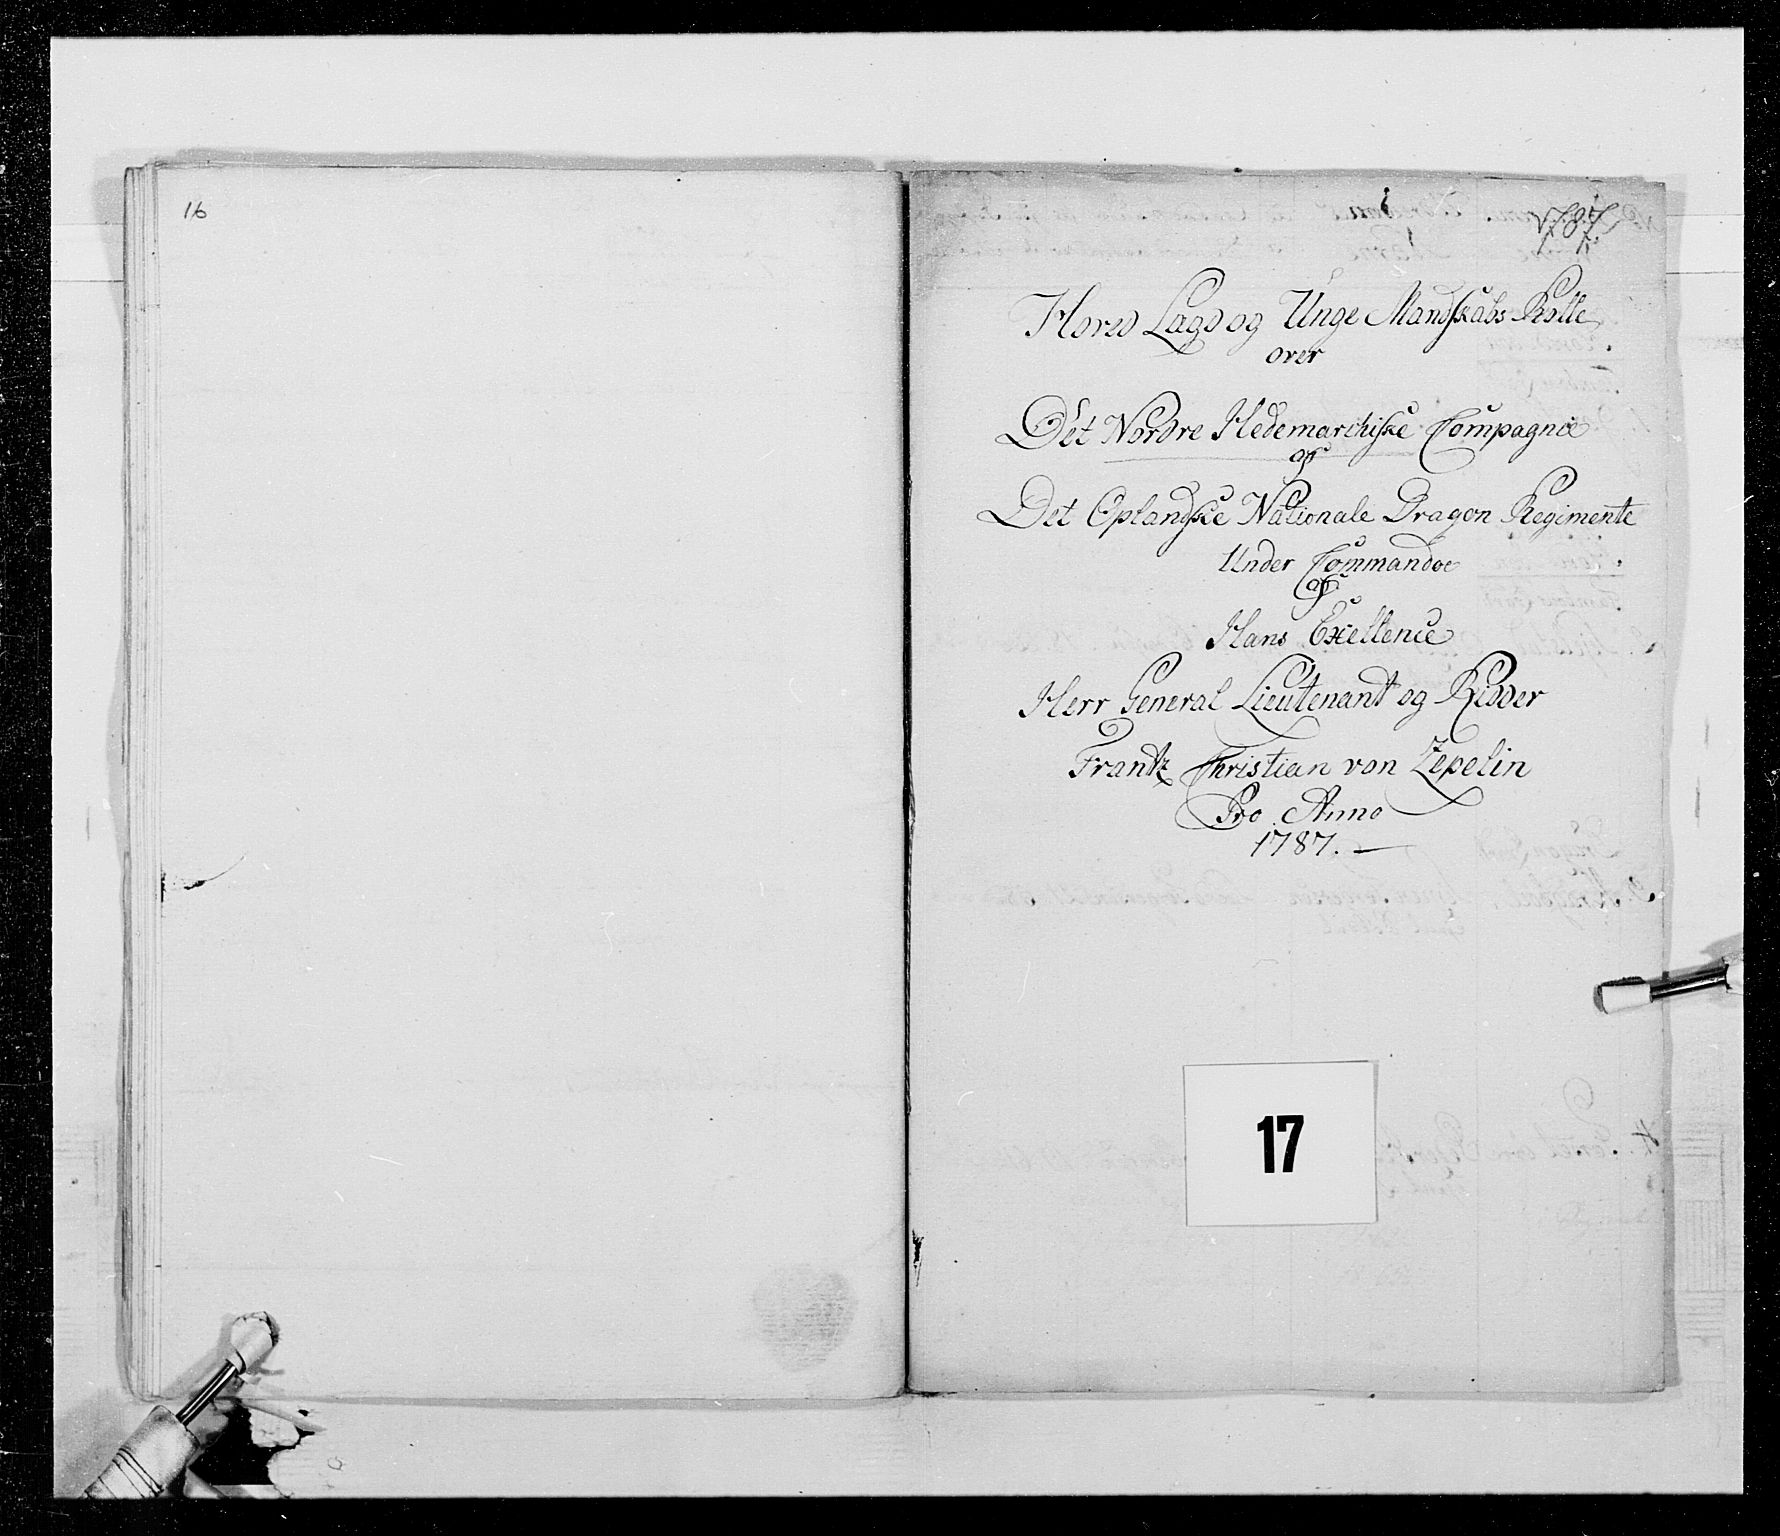 16
1787
Hoved Lægd og Unge Mandskabs Rolle
over
Det Nordre Hedemarchiske Compagnie
af
Det Oplandske Nationale Dragon Regimente
Under Commandoe
af
Hans Exellence
Herr General Lieutenant og Ridder
Frantz Christian von Zepelin
Pro Anno
1787.
17